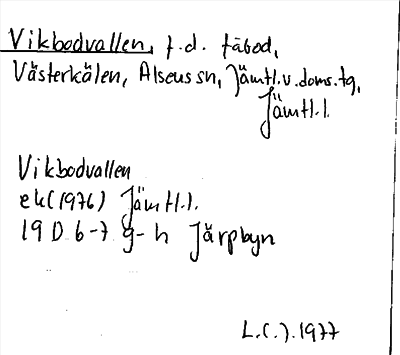 Vikbodvallen, f.d. fäbod,
Västerkälen, Alsens sn, Jämtl.v.doms.tg,
Jämtl.l.
Vikbodvallen
ek (1976) Jämtl.l.
19 D 6-7 g-h Järpbyn
L.C.J. 1977